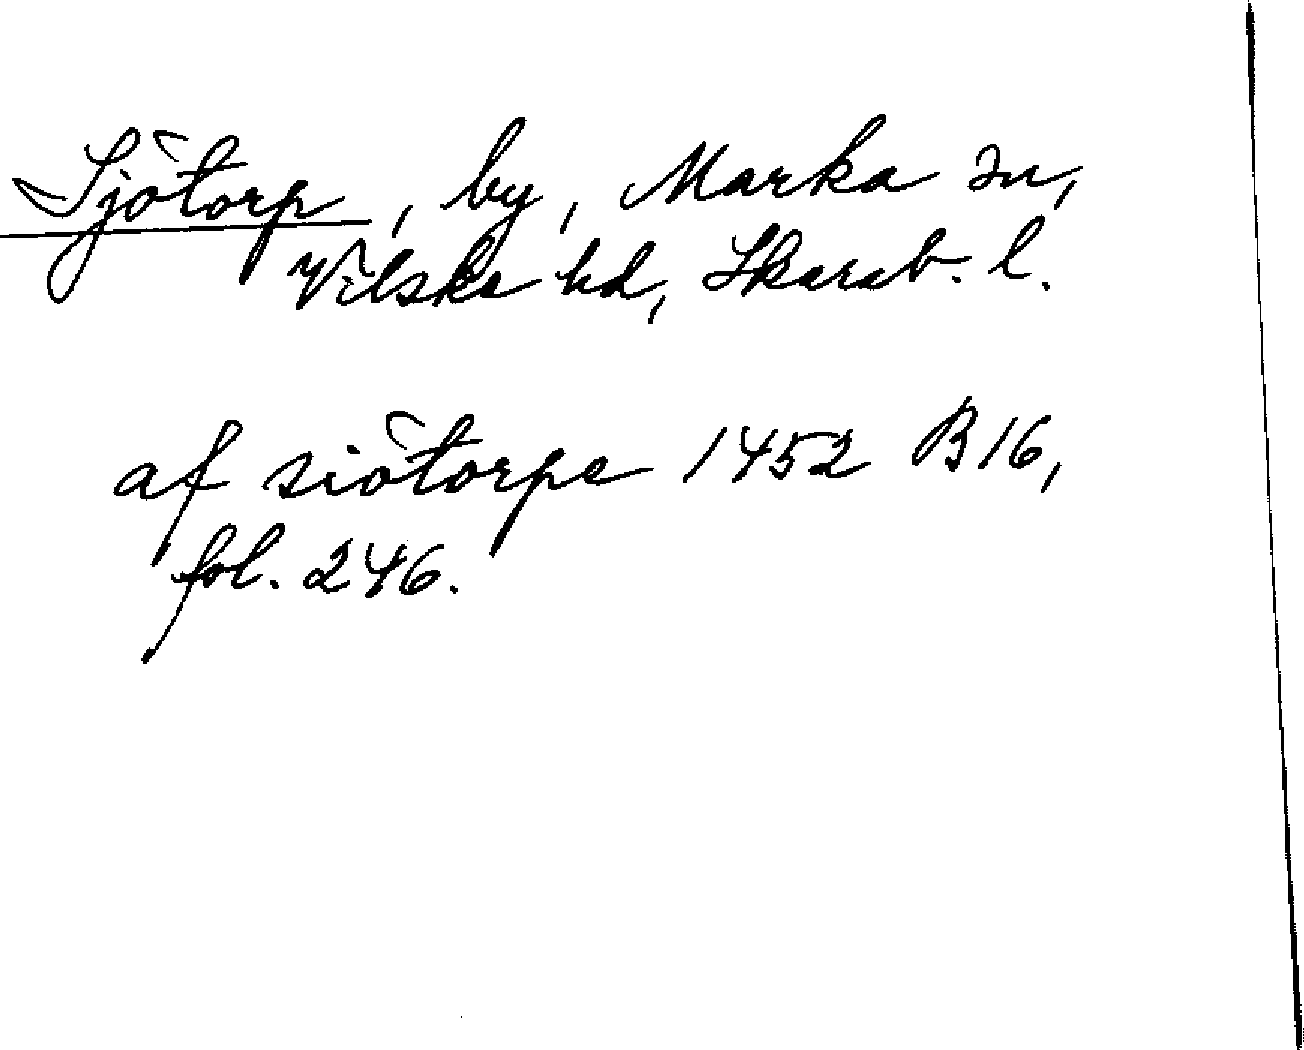 Sjötorp, by, Marka sn,
Vilske hd, Skarab. l.
af siötorpe 1452 B16,
fol. 246.